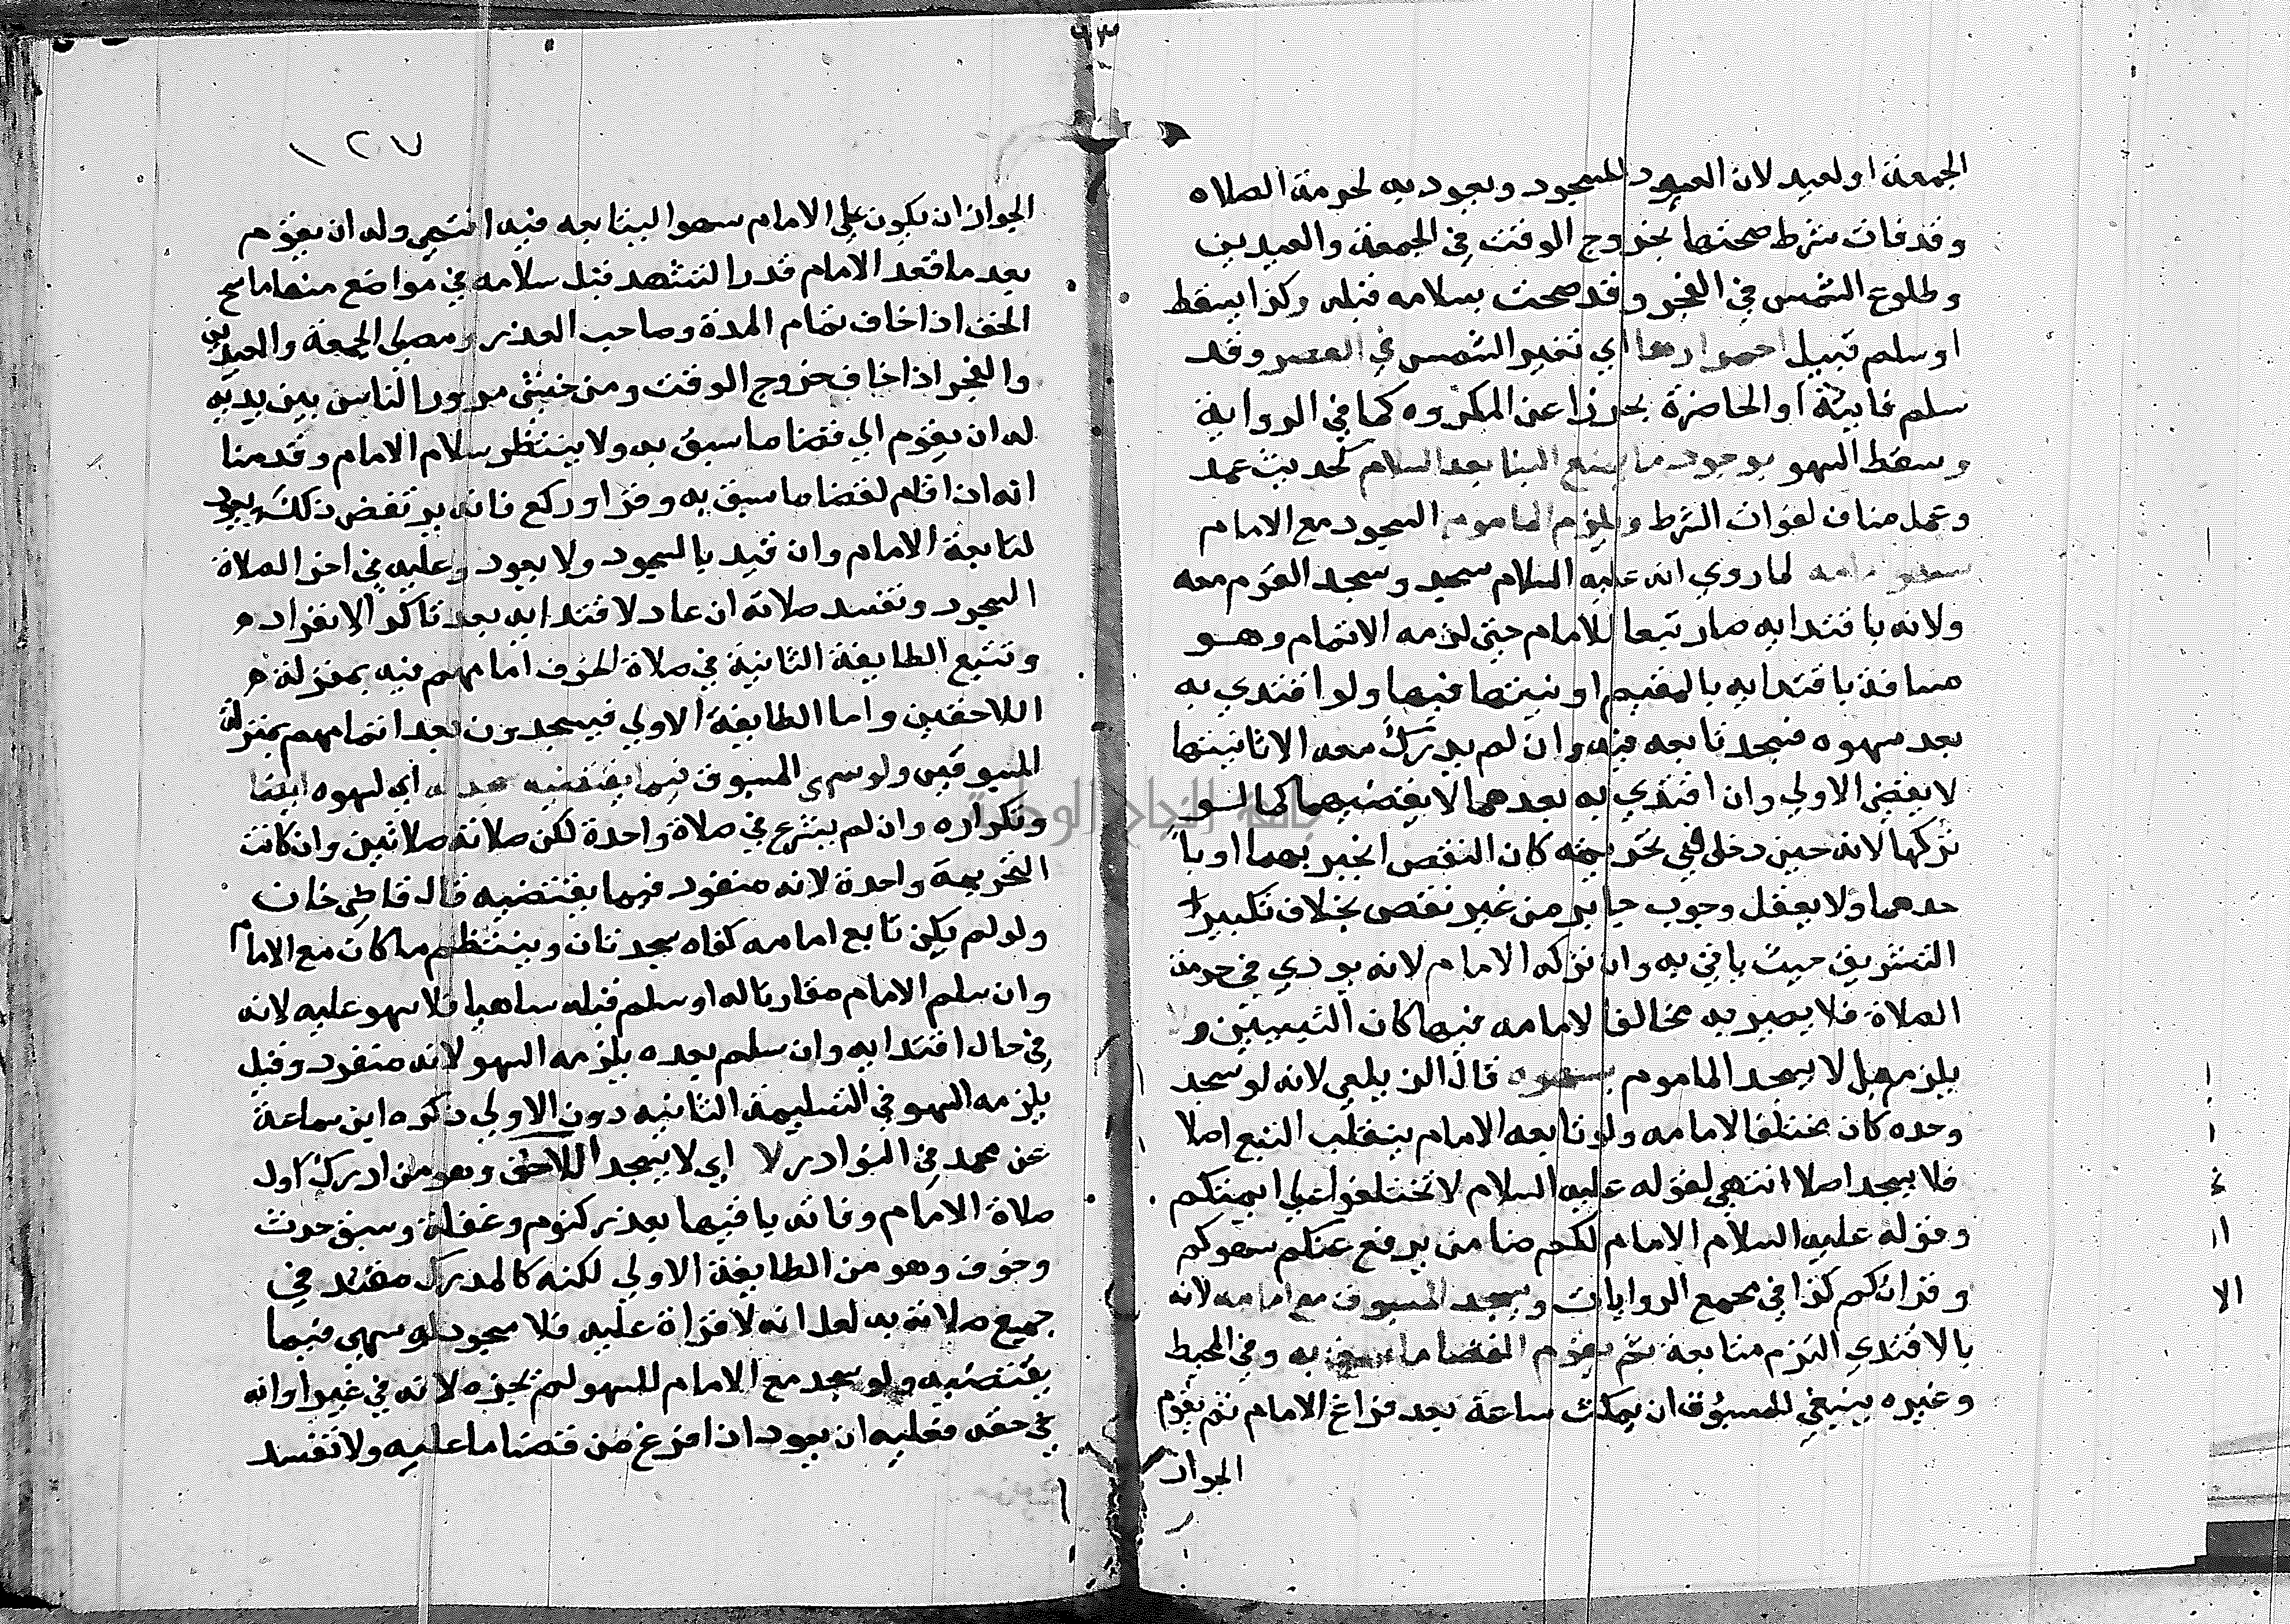 ٩٣
الجمعة او لعيد لان العود للسجود ويعود به لحرمة الصلاه
وقد فات شرط صحتها بخروج الوقت في الجمعة والعيدين
وطلوع الشمس في الفجر وقد صحت بسلامه قبله وكذا يسقط
او سلم قبيل احمرارها اي تغير الشمس في العصر وقد
سلم فايتة او الحاضرة تحرزا عن المكروه كما في الرواية
وسقط السهو بوجود ما يمنع البنا بعد السلام كحديث عمد
وعمل مناف لفوات الشرط ويلزم الماموم السجود مع الامام
بسهو امامه لما روي انه عليه السلام سجد وسجد القوم معه
ولانه باقتدايه صار تبعا للامام حتى لزمه الاتمام وهو
مسافة باقتدايه بالمقيم او نيتها فيها ولو اقتدي به
بعد سهوه فسجد تابعه فيه وان لم يدرك معه الا ثانيتها
لا يقضي الاولي وان اقتدي به بعدهما لا يقضيهما كما لسو
تركها لانه حين دخل في تحريمته كان النقص انجبر بهما او با
حدهما ولا يعقل وجوب جابر من غير نقص بخلاف تكبيرات
التشريق حيث ياتي به وان تركه الامام لانه يودي في حرمة
الصلاة فلا يصير به مخالفا لامامه فيها كان التيبيتين ولا
يلزم بل لا يسجد الماموم بسهوه قال الزيلعي لانه لو سجد
وحده كان مختلفا لامامه ولو تابعه الامام ينقلب التبع اصلا
فلا يسجد اصلا انتهي لقوله عليه السلام لا تختلفوا علي ايمتكم
وقوله عليه السلام الامام لكم ضامن يرفع عنكم سهوكم
وقراتكم كذا في مجمع الروايات ويسجد المسبوق مع امامه لانه
بالاقتدي التزم متابعة ثم يقوم لقضا ما سبق به وفي المحيط
وغيره ينبغي للمسبوق ان يمكث ساعة بعد فراغ الامام ثم يقوم
الجواز
١٢٧
الجواز ان يكون علي الامام سهوا ليتابعه فيه انتهي وله ان يقوم
بعد ما قعد الامام قدر التشهد قبل سلامه في مواضع منها ماسح
الخف اذا خاف تمام المدة وصاحب العذر ومصلي الجمعة والعيدين
والفجر اذا خاف خروج الوقت ومن خشي مرور الناس بين يديه
له ان يقوم الي قضا ما سبق به ولا ينتظر سلام الامام وقدمنا
انه اذا قام لقضا ما سبق به وقرا وركع فانه يرتفض ذلك ويعود
لتابعة الامام وان قيد بالسجود ولا يعود وعليه في اخر الصلاة
السجود وتفسد صلاته ان عاد لاقتدايه بعد تاكد الانفراد
وتتبع الطايفة الثانية في صلاة الخوف امامهم فيه بمنزلة
اللاحقين واما الطايفة الاولي فيسجدون بعد اتمامهم بمنزلة
المسبوقين ولو سهى المسبوق فيما يقتضيه سجد له اي لسهوه ايضا
وتكراره وان لم يشرع في صلاة واحدة لكن صلاته صلاتين وان كانت
التحريمة واحدة لانه منفرد فيما يقتضيه قال قاضي خان
ولو لم يكن تابع امامه كفاه سجدتان وينتظم ما كان مع الاما
وان سلم الامام مقارنا له او سلم قبله ساهيا فلا سهو عليه لانه
في حال اقتدايه وان سلم بعده يلزمه السهو لانه منفرد وقيل
يلزمه السهو في التسليمة الثانيه دون الاولي ذكره ابن سماعة
عن محمد في النوادر لا اي لا يسجد اللاحق وهو من ادرك اول
صلاة الامام وفاته باقيها بعذر كنوم وغفلة وسبق حدث
وخوف وهو من الطايفة الاولي لكنه كالمدرك مقتد في
جميع صلاته به لعل انه لا قراة عليه فلا سجود لو سهى فيما
يقتضيه ولو سجد مع الامام للسهو لم يجزه لانه في غير اوانه
في حقه فعليه ان يعود اذا فرغ من قضا ما عليه ولا تفسد
جامعة النجاح الوطنية